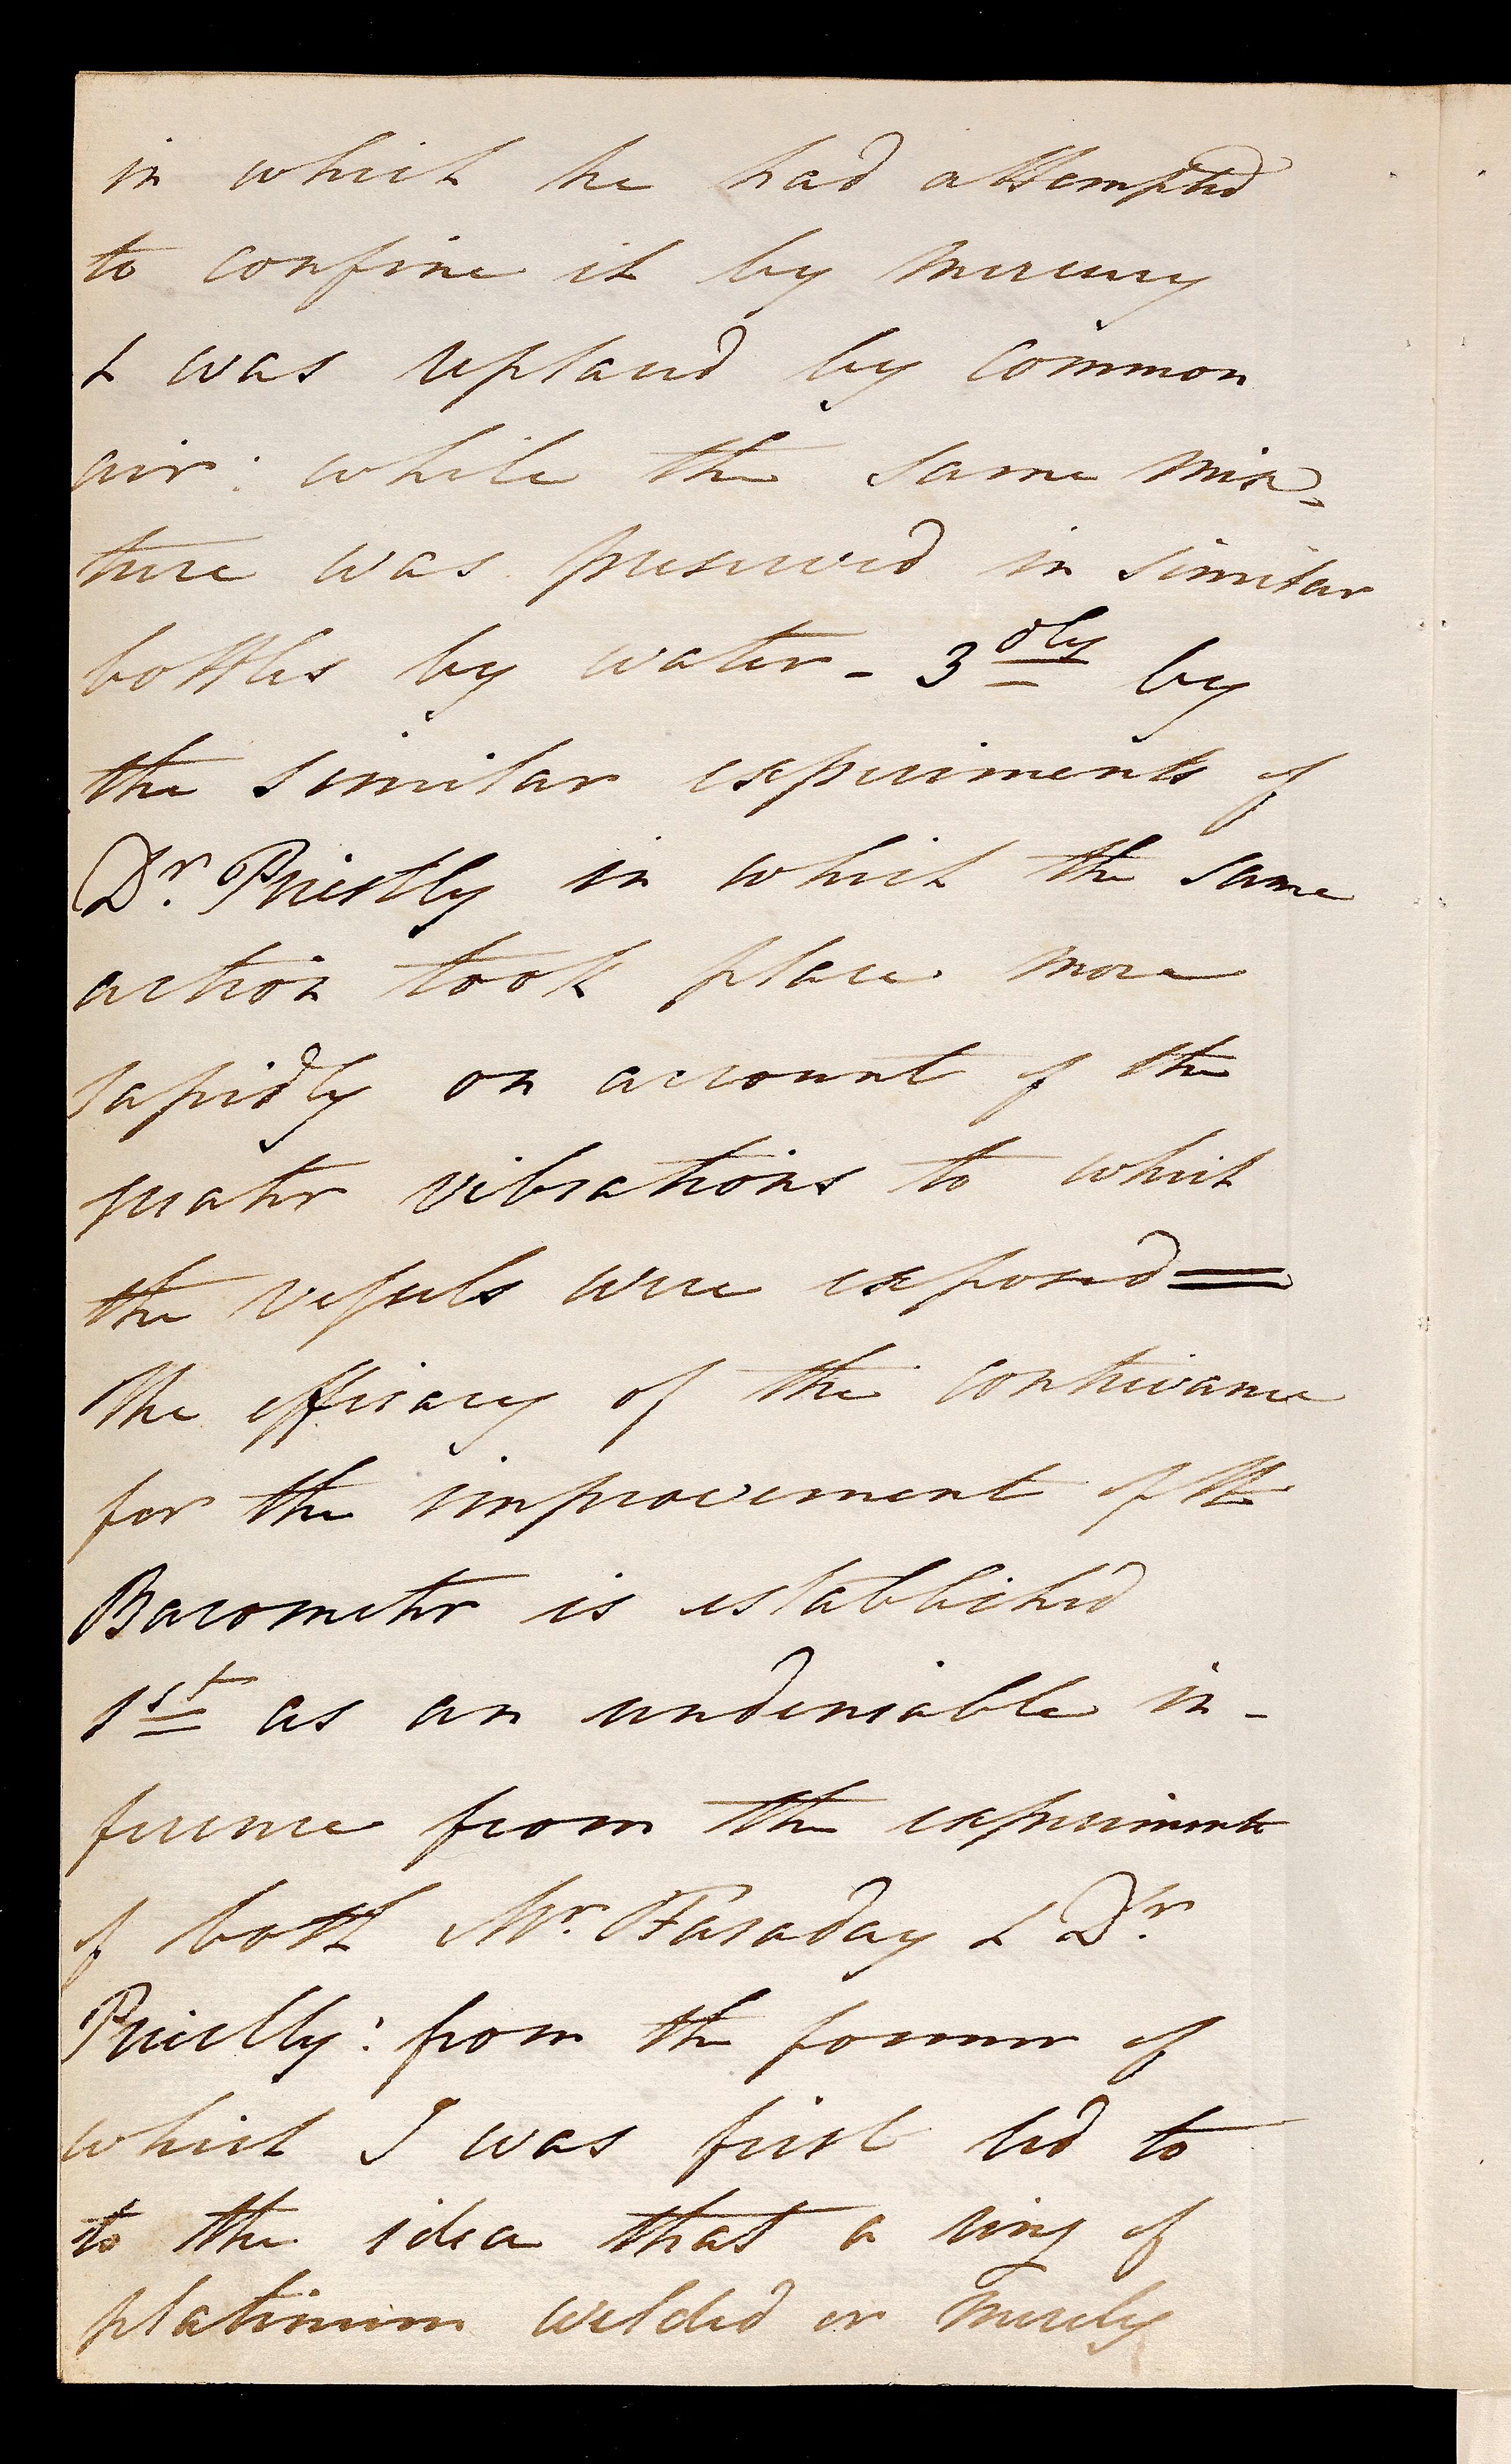 in which he had attempted
to confine it by mercury
& was replaced by common
air: while the same mix-
ture was preserved in similar
bottles by water - 3dly by
the similar experiments of
Dr. Priestly in which the same
action took place more
rapidly on account of the
greater vibrations to which
the vessels were exposed =
The efficacy of the contrivance
for the improvement of the
Barometer is established
1st as an undeniable in-
ference from the experiments
of both Mr. Faraday & Dr.
Priestly: from the former of
which I was first led to
to the idea that a ring of
platinum welded or merely